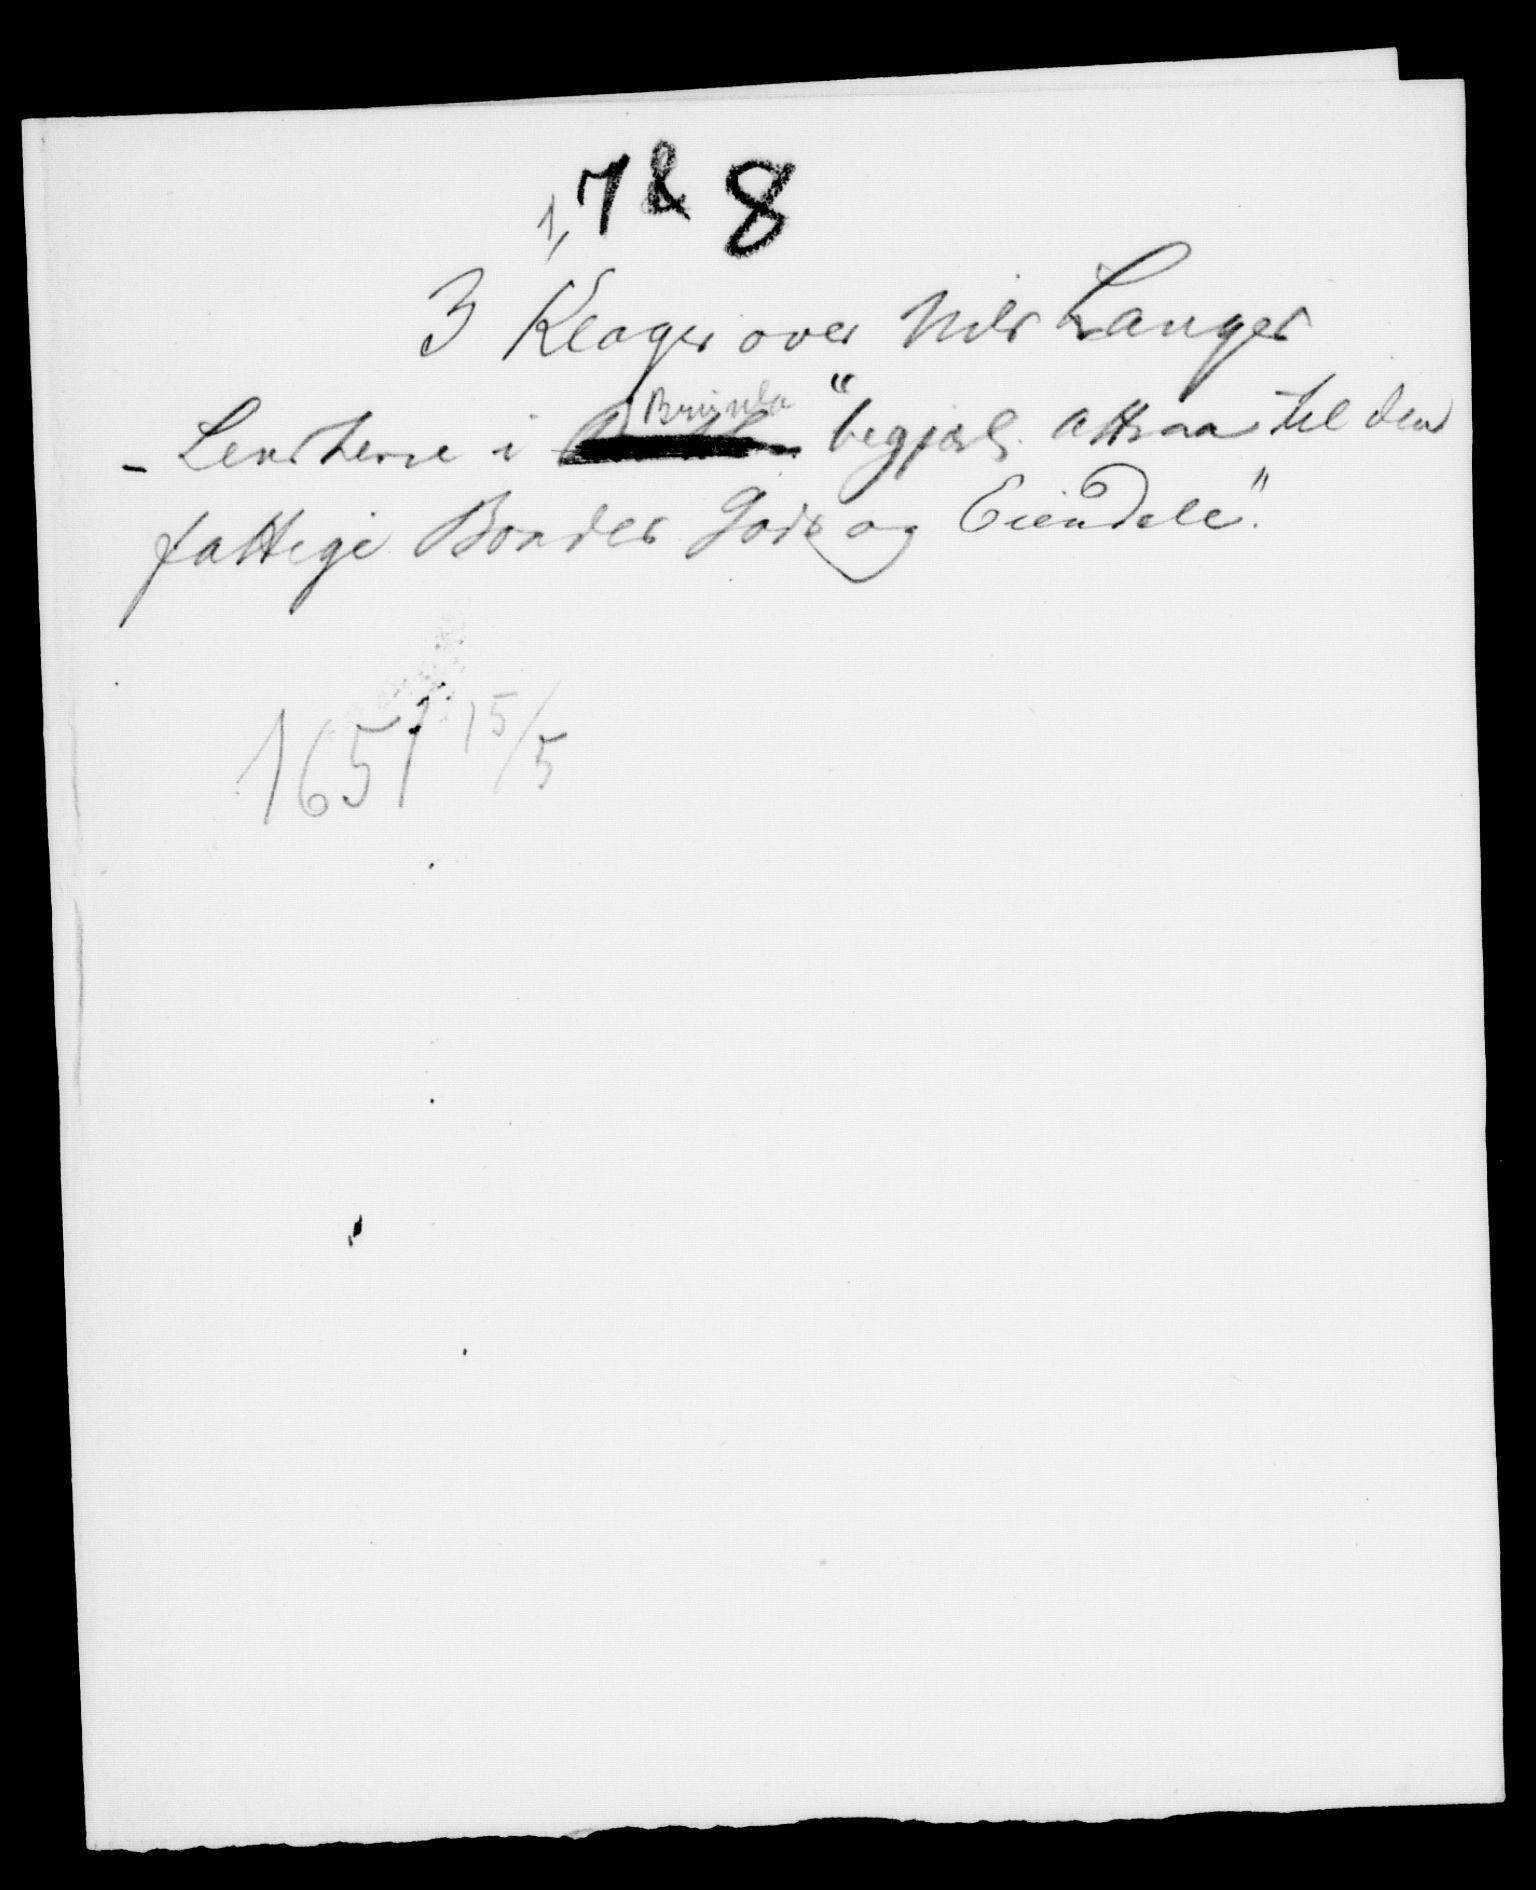 1, 7 & 8
3 Klager over Nils Langes
- Lensherre i Brunla "begjærl. Attraa til den
fattige Bondes Gods og Eiendele".
1651 15/5